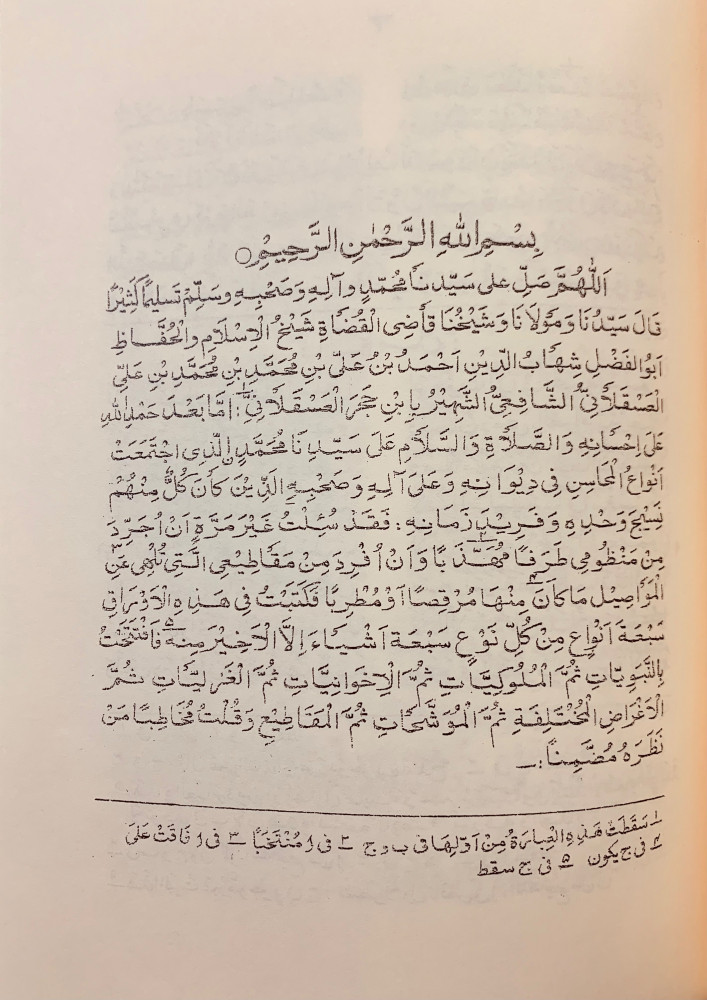 بِسْمِ اللهِ الرَّحْمٰنِ الرَّحِيْمِ ○
اَللّٰهُمَّ صَلِّ علی سَيِّدنَا مُحَمَّدٍ وآلِهِ وَصَحْبِهِ وسَلِّمْ تَسلِيمًا كَثِيْرًا
قَالَ سَيِّدُنَا وَمَوْلَانَا وَشَيْخُنَا قَاضِی الْقُضَاةِ شَيْخُ الْإِسْلَامِ والْحُفَّاظِ
اَبُوالْفَضْلِ شِهَابُ الدِّيْنِ اَحْمَدُ بْنُ عَلِیِّ بْنِ مُحَمَّدِ بْنِ مُحَمَّدِ بْنِ عَلِیٍّ
الْعَسْقَلَانِیُّ الشَّافِعِیُّ الشَّهِيْرُ بِابْنِ حَجَرَ الْعَسْقَلَانِیِّ ۱: اَمَّا بَعْدَ حَمْدِ اللهِ
عَلیٰ اِحْسَانِهِ وَالصَّلَاةِ وَالسَّلَامِ عَلیٰ سَيِّدِنَا مُحَمَّدٍ الَّذِی اجْتَمَعَتْ
اَنْوَاعُ الْمَحَاسِنِ فِی دِيْوَانِهِ وَعَلیٰ آلِهِ وَصَحْبِهِ الَّذِيْنَ كَانَ كُلٌّ مِنْهُمْ
نَسِيْجَ وَحْدِهِ وَفَرِيْدَ زَمَانِهِ : فَقَدْ سُئِلْتُ غَيْرَ مَرَّةٍ اَنْ اُجَرِّدَ
مِنْ مَنْظُومِی طَرَفًا مُهَذَّبًا ۲ وَاَنْ اُفْرِدَ مِنْ مَقَاطِيعِی الَّتِی تُلْهِی عَنِ ۳
الْمَوَاصِيْلِ مَا كَانَ ۴ مِنْهَا مُرْقِصًا اَوْ مُطْرِبًا فَكَتَبْتُ فِی هَذِهِ الْاَوْرَاقِ
سَبْعَةَ اَنْوَاعٍ مِنْ كُلِّ نَوْعٍ سَبْعَةَ اَشْيَاءَ اِلَّا الْاَخِيْرَ مِنه ۵ فَافْتَتَحْتُ
بِالنَّبَوِيَّاتِ ثُمَّ الْمُلُوكِيَّاتِ ثُمَّ الْاِخْوَانِيَّاتِ ثُمَّ الْغَزَلِيَّاتِ ثُمَّ
الْاَغْرَاضِ الْمُخْتَلِفَةِ ثُمَّ الْمُوَشَّحَاتِ ثُمَّ الْمَقَاطِيْعِ وَقُلْتُ مُخَاطِبًا مَنْ
نَظَرَهُ مُضَمِّنًا :ـ
۱ سَقَطَتْ هَذِهِ الْعِبَارَةُ مِنْ اَوَّلِهَا فی ب و ج ۲ فی ا مُنْتَخَبًا ۳ فی ا فَاقَتْ عَلیٰ
۴ فی ج يكون ۵ فی ج سقط